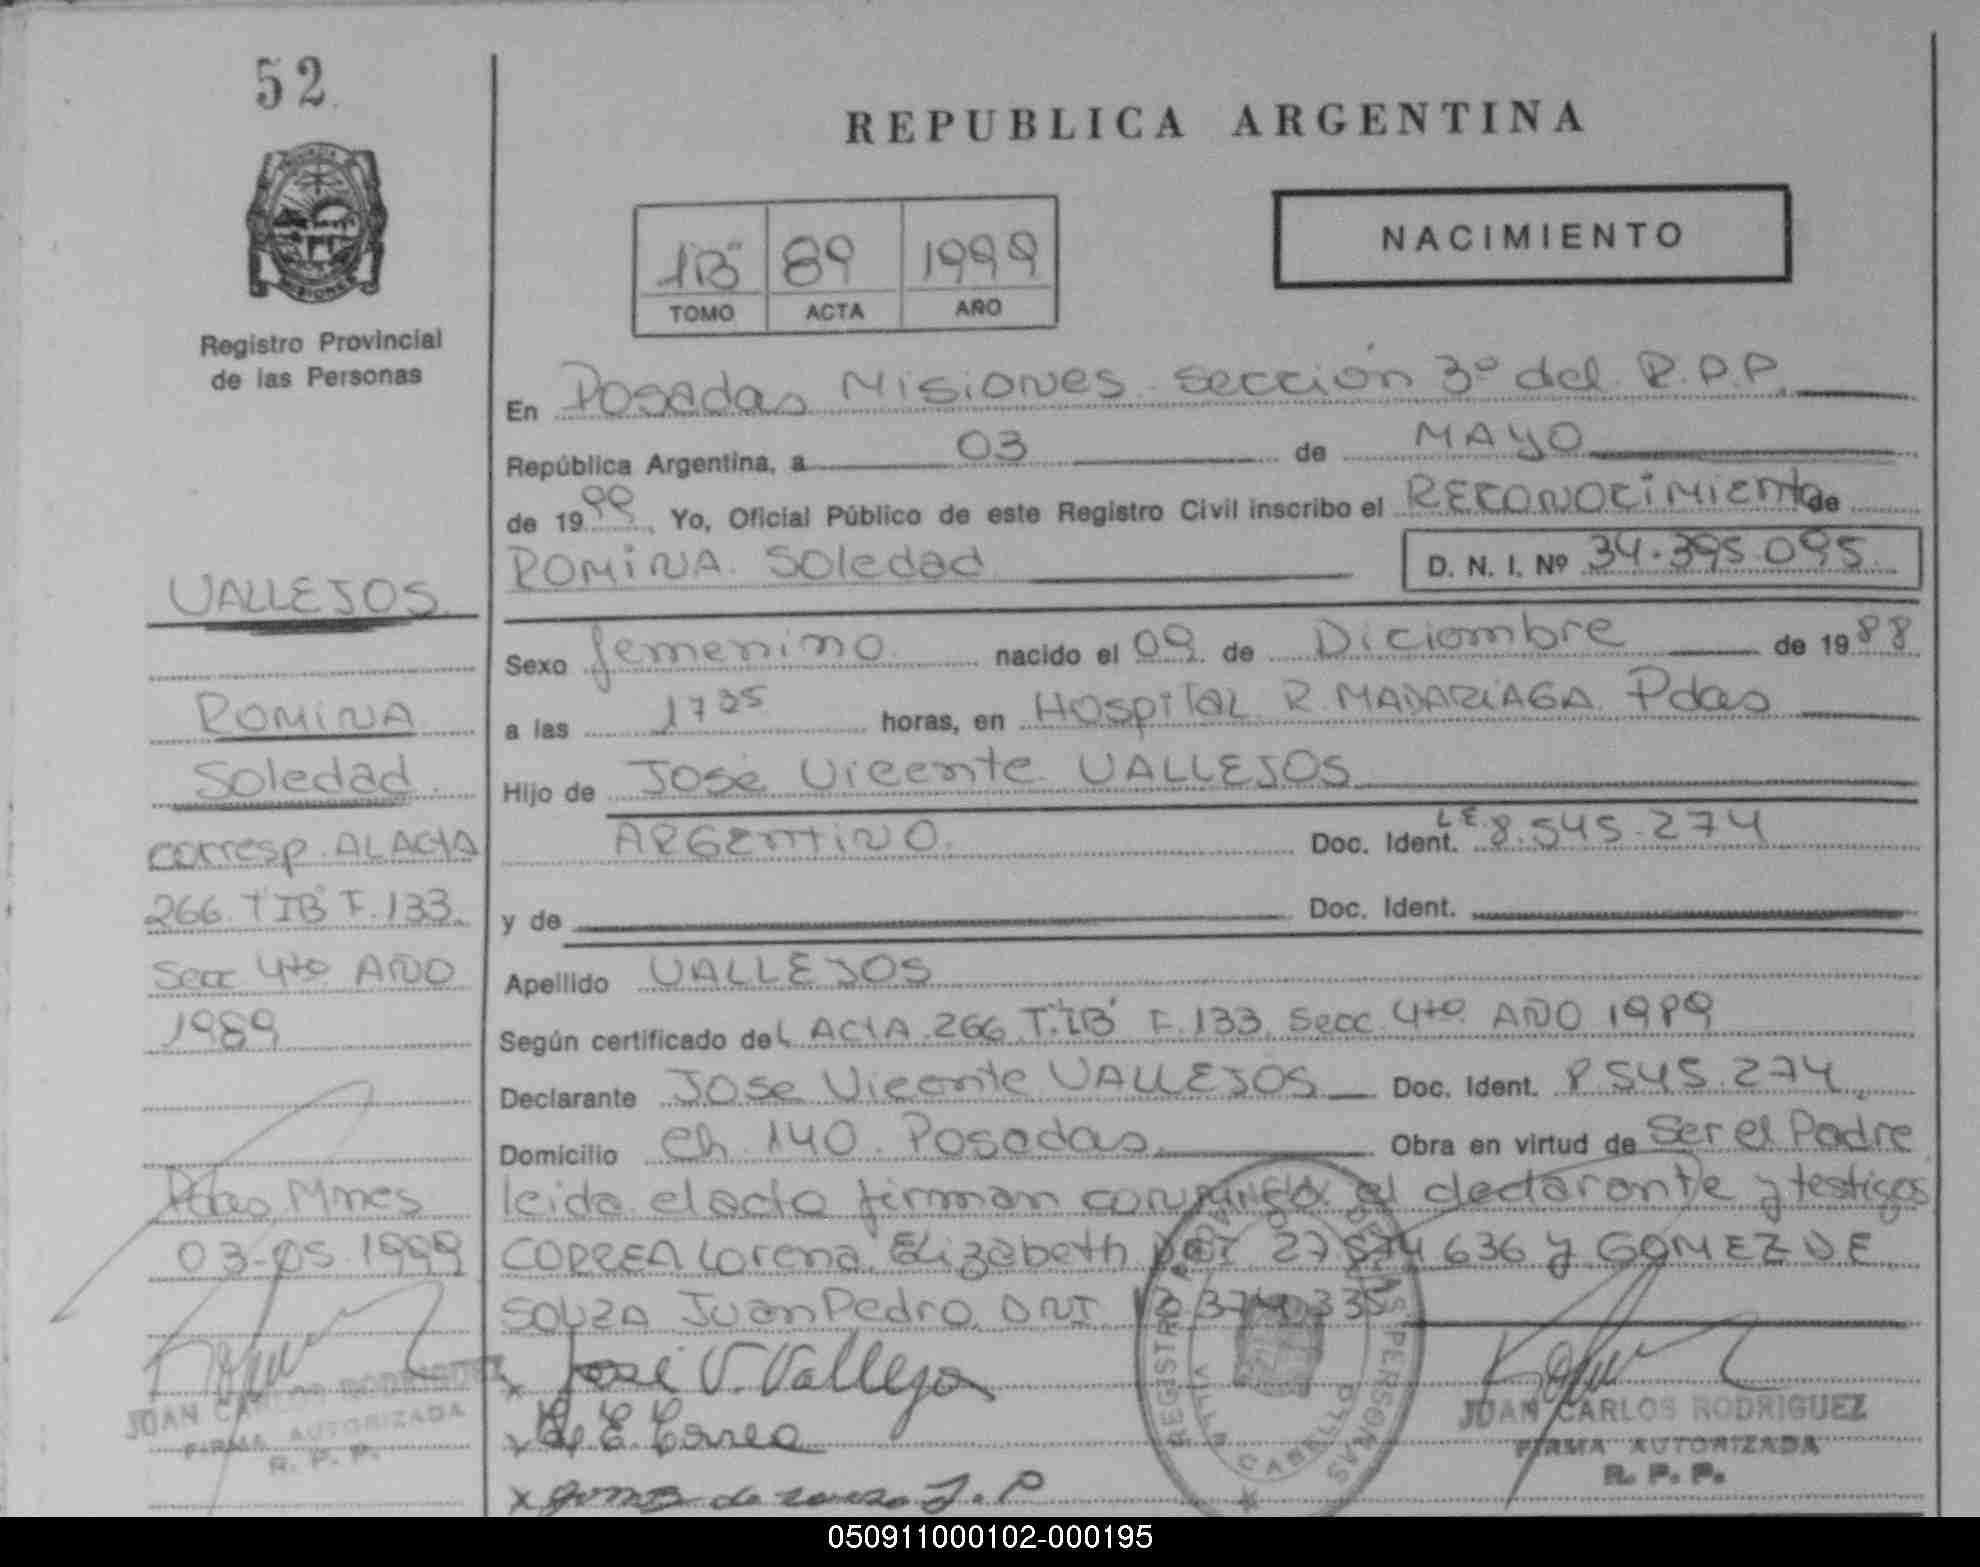 52
REPUBLICA ARGENTINA
NACIMIENTO
1B" 89 1999
TOMO ACTA AÑO
MISIONES
Registro Provincial
de las Personas
En Posadas Misiones sección 3º del R.P.P.
República Argentina, a 03 de MAYO
de 1999. Yo, Oficial Público de este Registro Civil inscribo el RECONOCIMIENTO de
ROMINA Soledad D. N. I. Nº 34.395.095
VALLEJOS
ROMINA
Soledad
corresp. AL ACTA
266 T IB F. 133
Secc 4to AÑO
1989
Pdas Mnes
03-05-1999
JUAN CARLOS RODRIGUEZ
FIRMA AUTORIZADA
R. P. P.
Sexo femenino nacido el 09 de Diciembre de 1988
a las 17 35 horas, en Hospital R. MADARIAGA Pdas
Hijo de José Vicente VALLEJOS
ARGENTINO Doc. Ident. LE. 8.545.274
y de Doc. Ident.
Apellido VALLEJOS
Según certificado del ACTA 266 T. IB" F. 133 Secc 4to AÑO 1989
Declarante Jose Vicente VALLEJOS Doc. Ident. 8.545.274
Domicilio Ch 140 Posadas Obra en virtud de Ser el Padre
leida el acta firman conmigo el declarante y testigos
CORREA Lorena Elizabeth DNI 27 636 y GOMEZ DE
SOUZA Juan Pedro DNI 335
José V. Vallejo
E. Correa
gomez de souza J. P
REGISTRO PROVINCIAL DE LAS PERSONAS
VILLA CABELLO
JUAN CARLOS RODRIGUEZ
FIRMA AUTORIZADA
R. P. P.
050911000102-000195